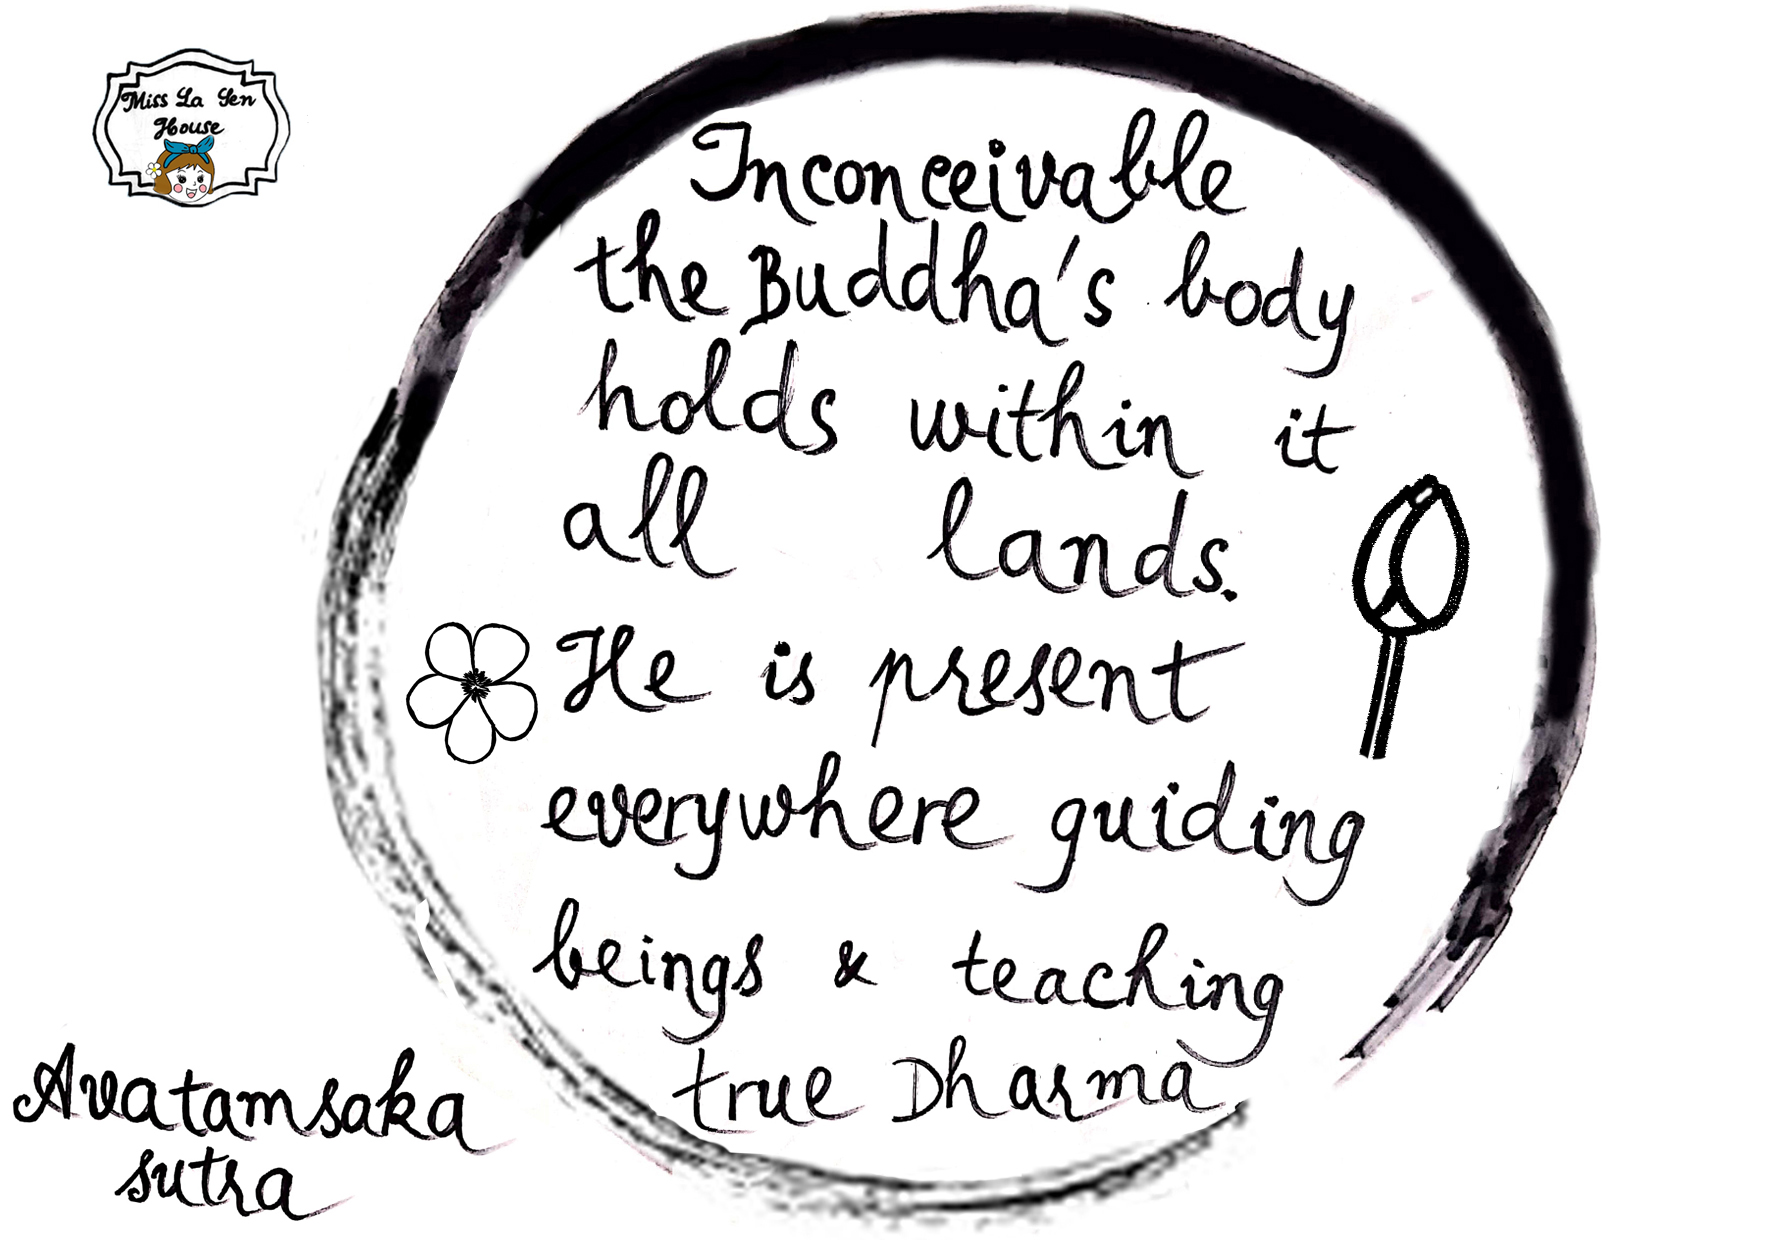 Miss La Sen
House
Inconceivable
the Buddha's body
holds within it
all lands.
He is present
everywhere guiding
beings & teaching
true Dharma
Avatamsaka
sutra